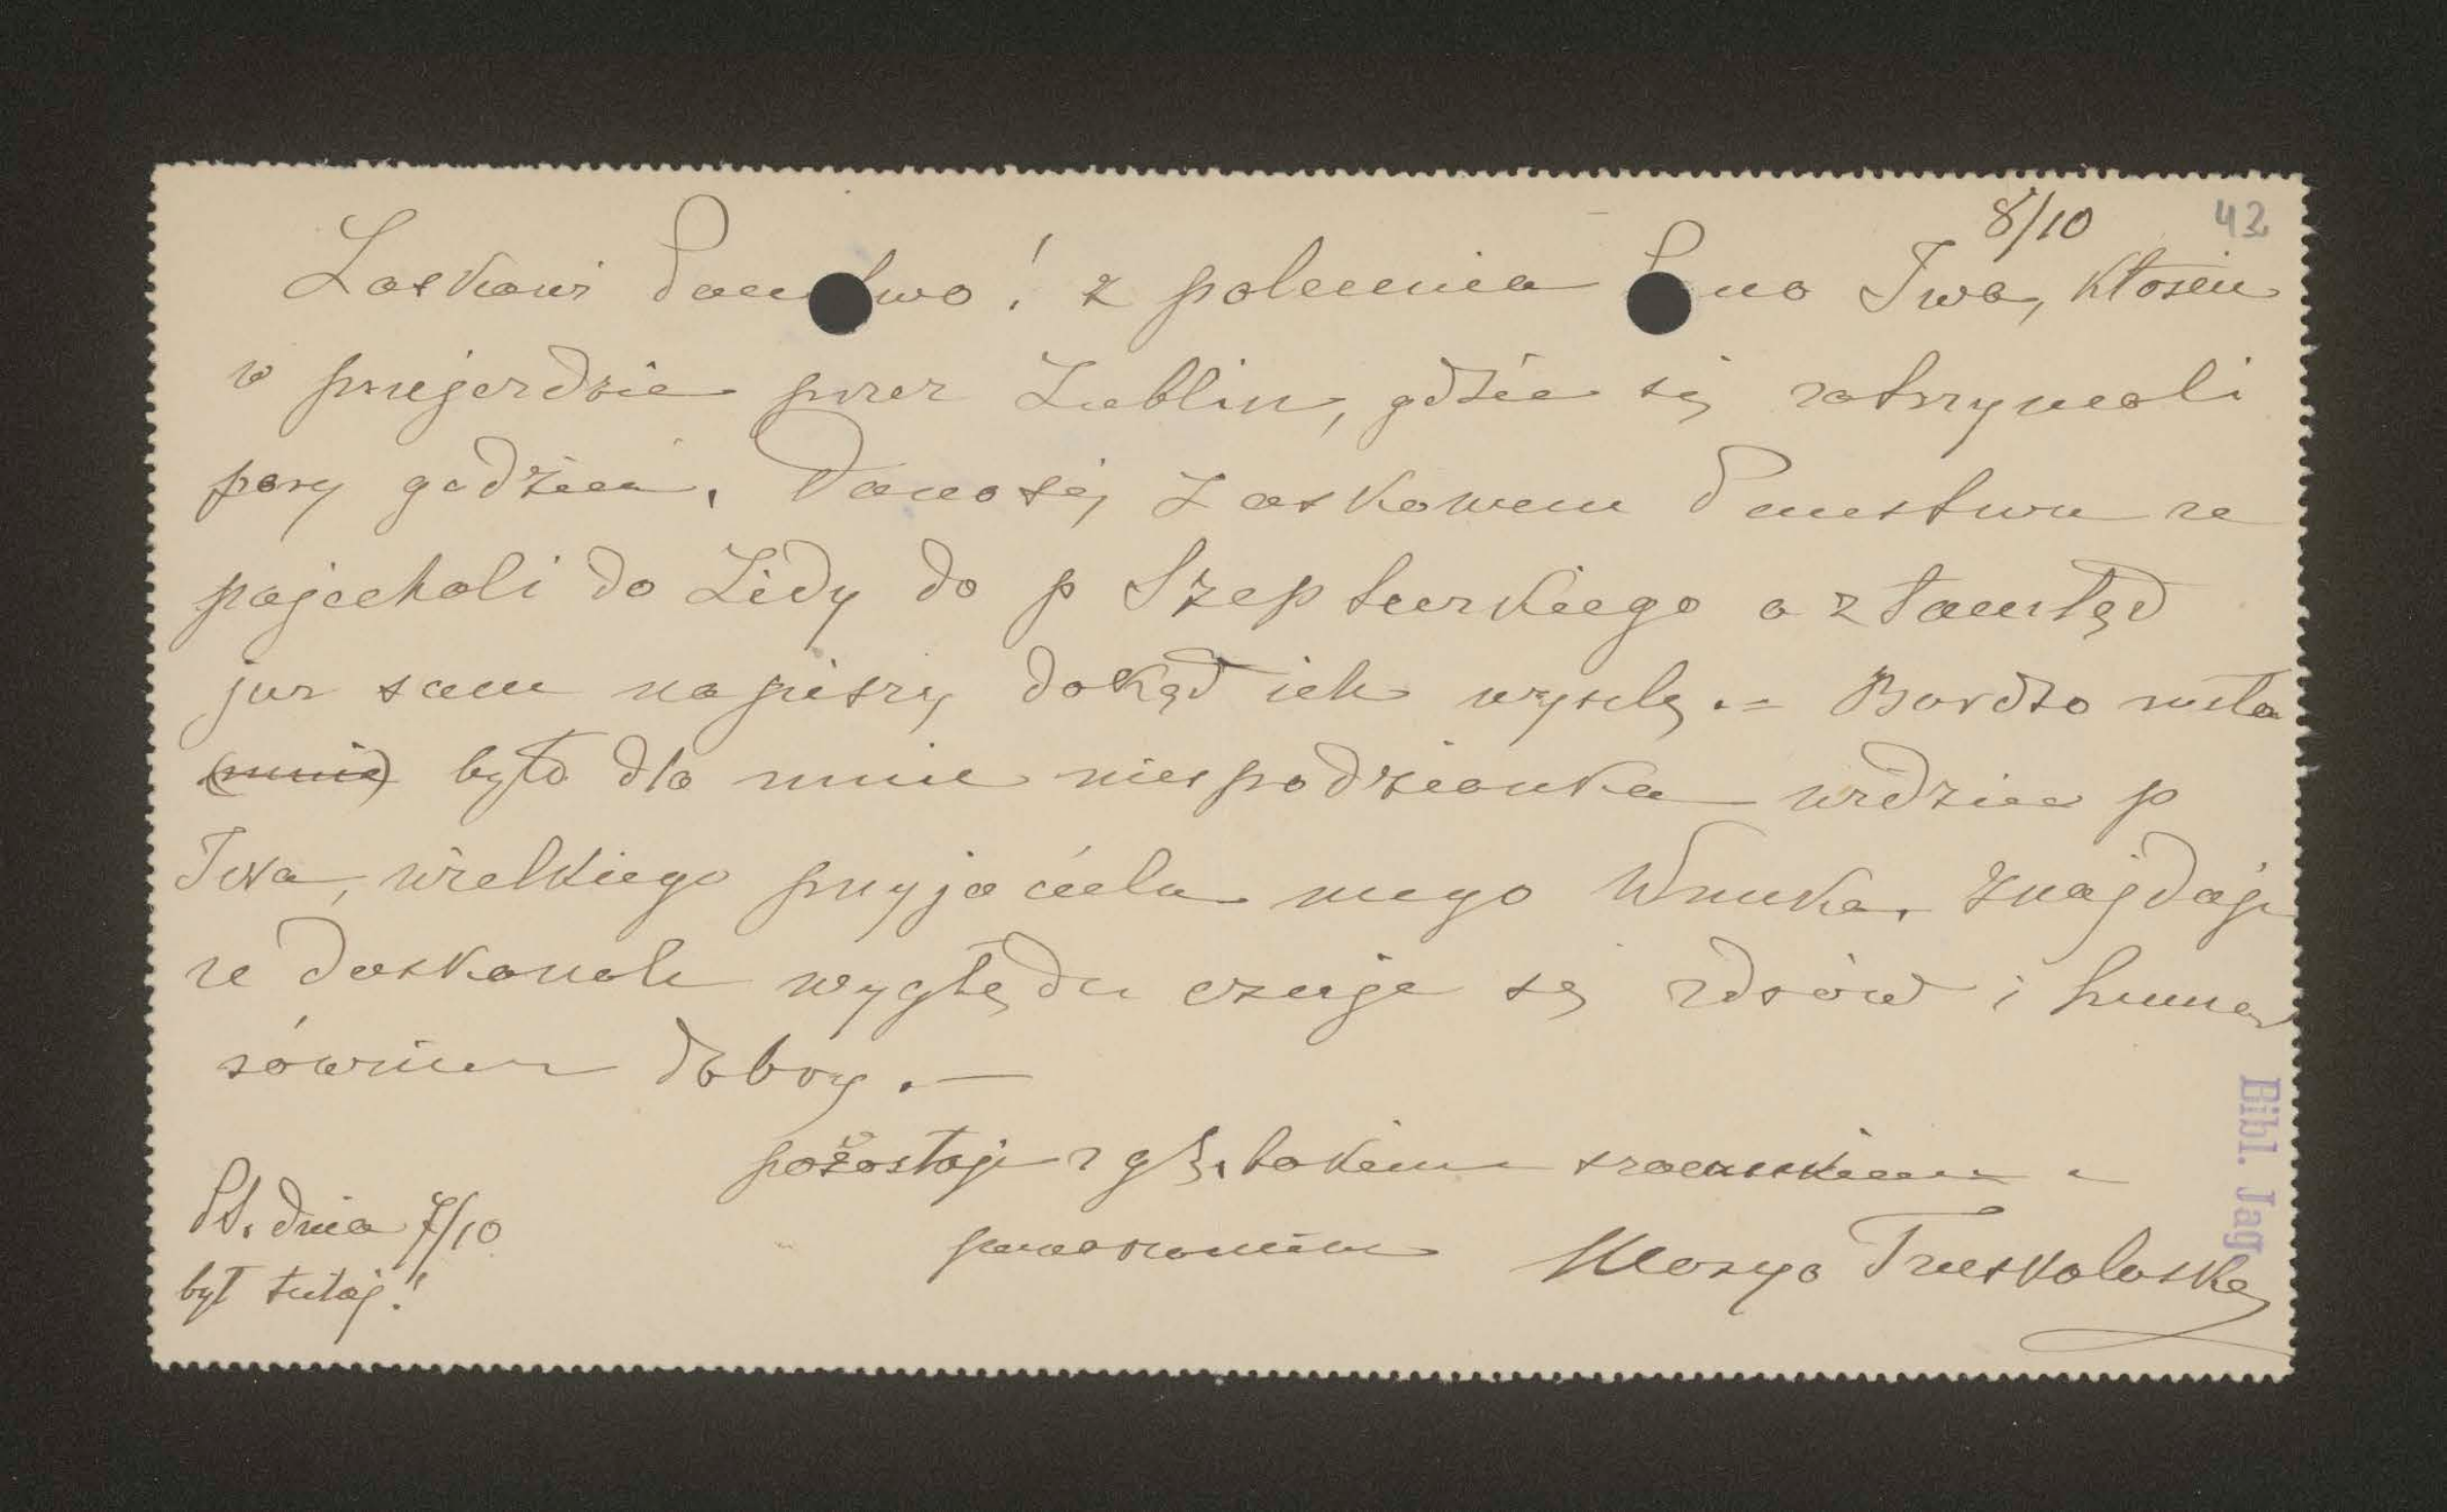 8/10 42
Łaskawi Państwo! z polecenia Pana Iwa, którzy
w przejezdzie przez Lublin, gdzie się zatrzymali
parę godzin. Donoszę Łaskawem Państwu ze
pojechali do Lidy do p Szeptyckiego a ztamtąd
juz sam napiszę dokąd ich wyszlą. = Bardzo miła
(mnie) było dla mnie niespodzianka widziec p
Iwa, wielkiego przyjaciela mego Wnuka. Znajdaje
ze doskonale wygląda czuje sę zdrów i humor
równiez dobry. —
pozostaje z głębokiem szacunkiem i
powazaniem Marya
Pt. dnia 7/10
był tutaj!
Bibl. Jag.